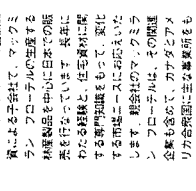 資による子会社で、マックミ
ラン ブローデルの生産する
林産製品を中心に日本への販
売を行なっています。長年に
わたる経験と、住宅資材に関
する専門知識をもって、変化
する市場ニーズにお応えいた
します。親会社のマックミラ
ン ブローデルは、その関連
企業も含めて、カナダとアメ
リカ合衆国に主な事業所をも